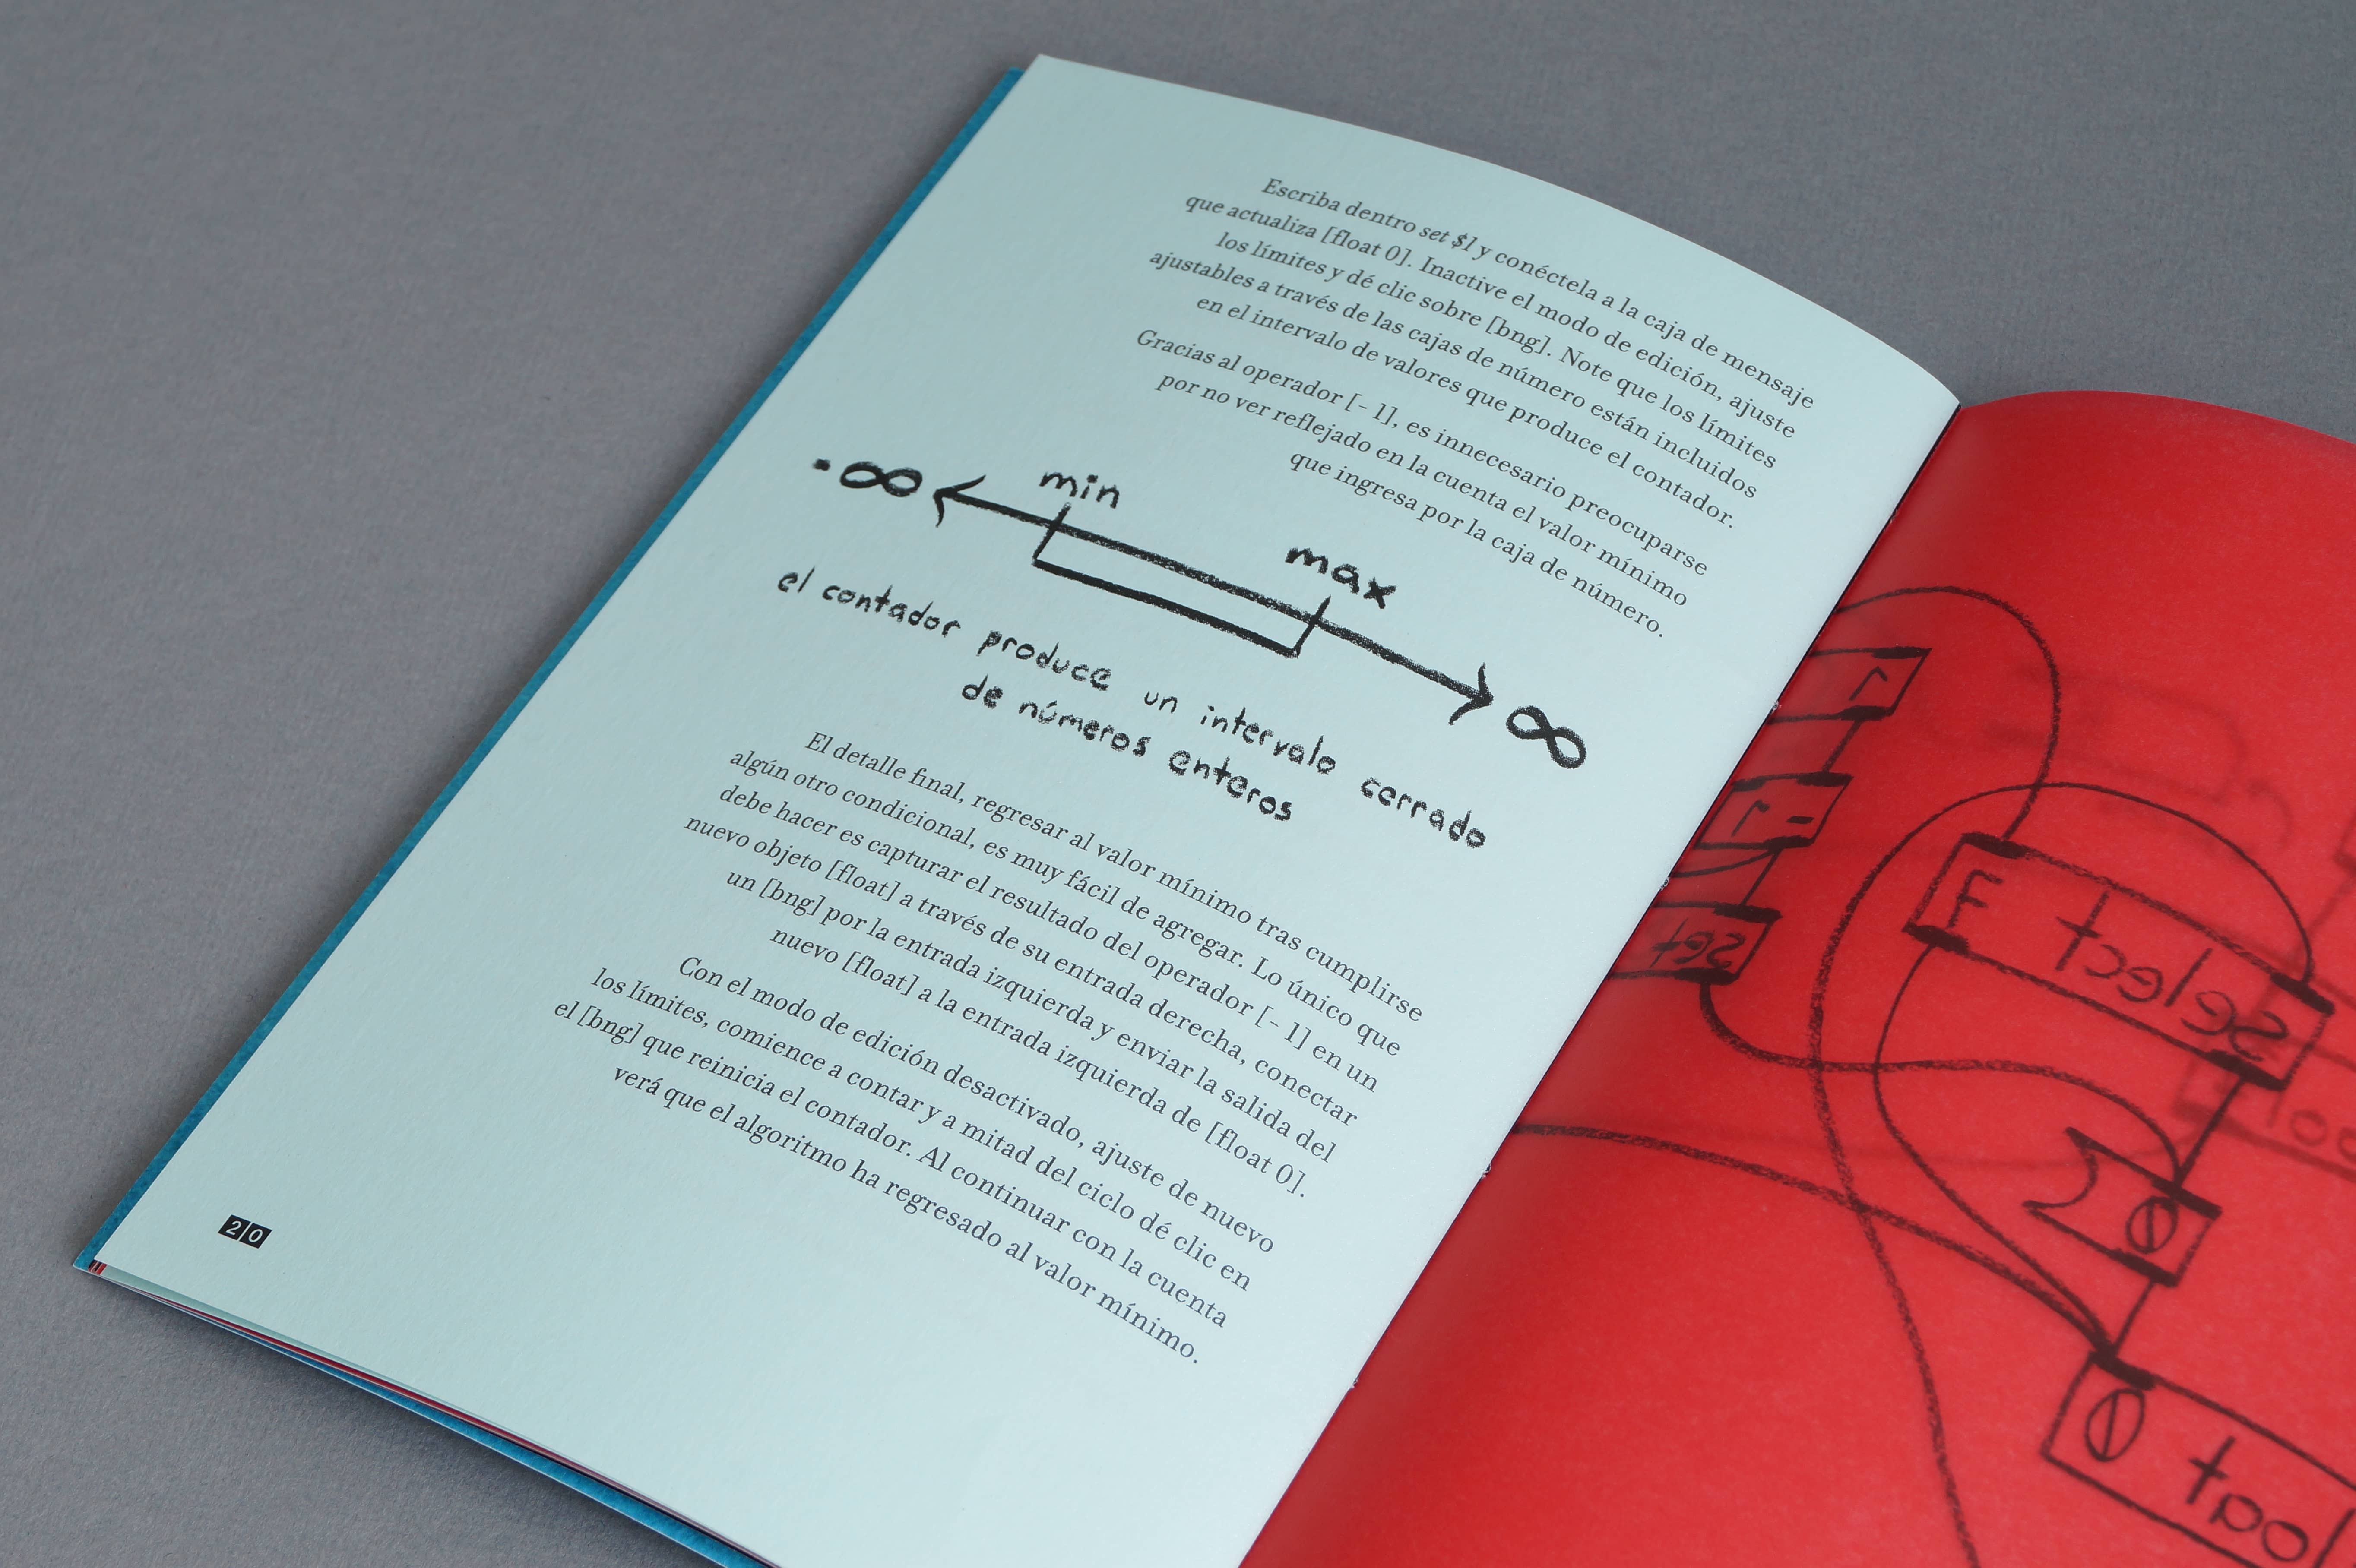 Escriba dentro set $1 y conéctela a la caja de mensaje
que actualiza [float 0]. Inactive el modo de edición, ajuste
los límites y dé clic sobre [bng]. Note que los límites
ajustables a través de las cajas de número están incluidos
en el intervalo de valores que produce el contador.
Gracias al operador [- 1], es innecesario preocuparse
por no ver reflejado en la cuenta el valor mínimo
que ingresa por la caja de número.
-∞
min
max
∞
el contador produce un intervalo cerrado
de números enteros
El detalle final, regresar al valor mínimo tras cumplirse
algún otro condicional, es muy fácil de agregar. Lo único que
debe hacer es capturar el resultado del operador [- 1] en un
nuevo objeto [float] a través de su entrada derecha, conectar
un [bng] por la entrada izquierda y enviar la salida del
nuevo [float] a la entrada izquierda de [float 0].
Con el modo de edición desactivado, ajuste de nuevo
los límites, comience a contar y a mitad del ciclo dé clic en
el [bng] que reinicia el contador. Al continuar con la cuenta
verá que el algoritmo ha regresado al valor mínimo.
20
- 1
set
select 7
0
oat 0